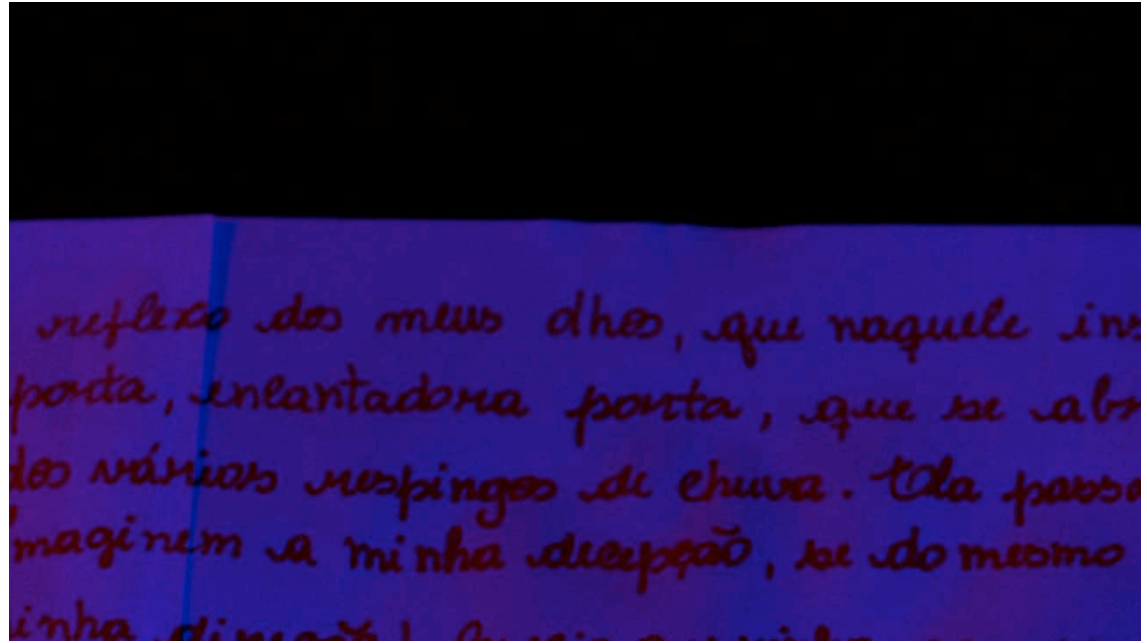 reflexo dos meus olhos, que naquele ins
porta, encantadora porta, que se abr
dos vários respingos de chuva. Ela passa
maginem a minha decepção, se do mesmo
inha direção!